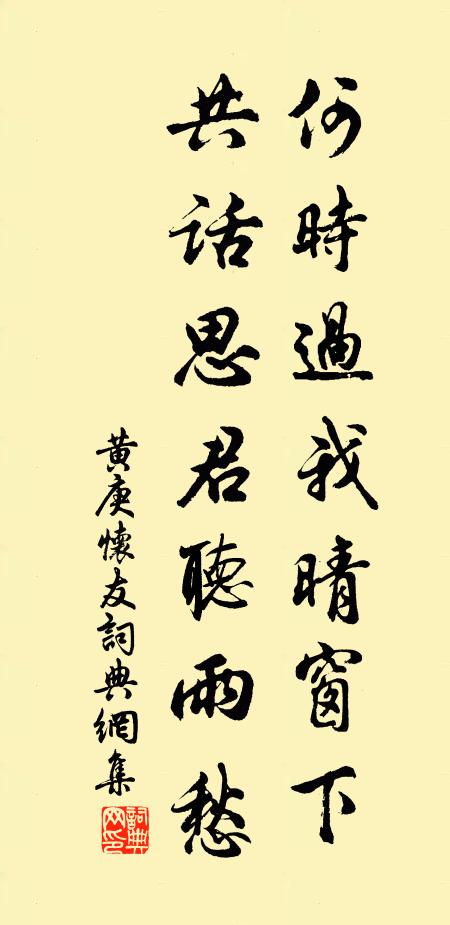 何時過我晴窗下
共话思君聽雨愁
黄庚懷友詞典網集
詞典网印